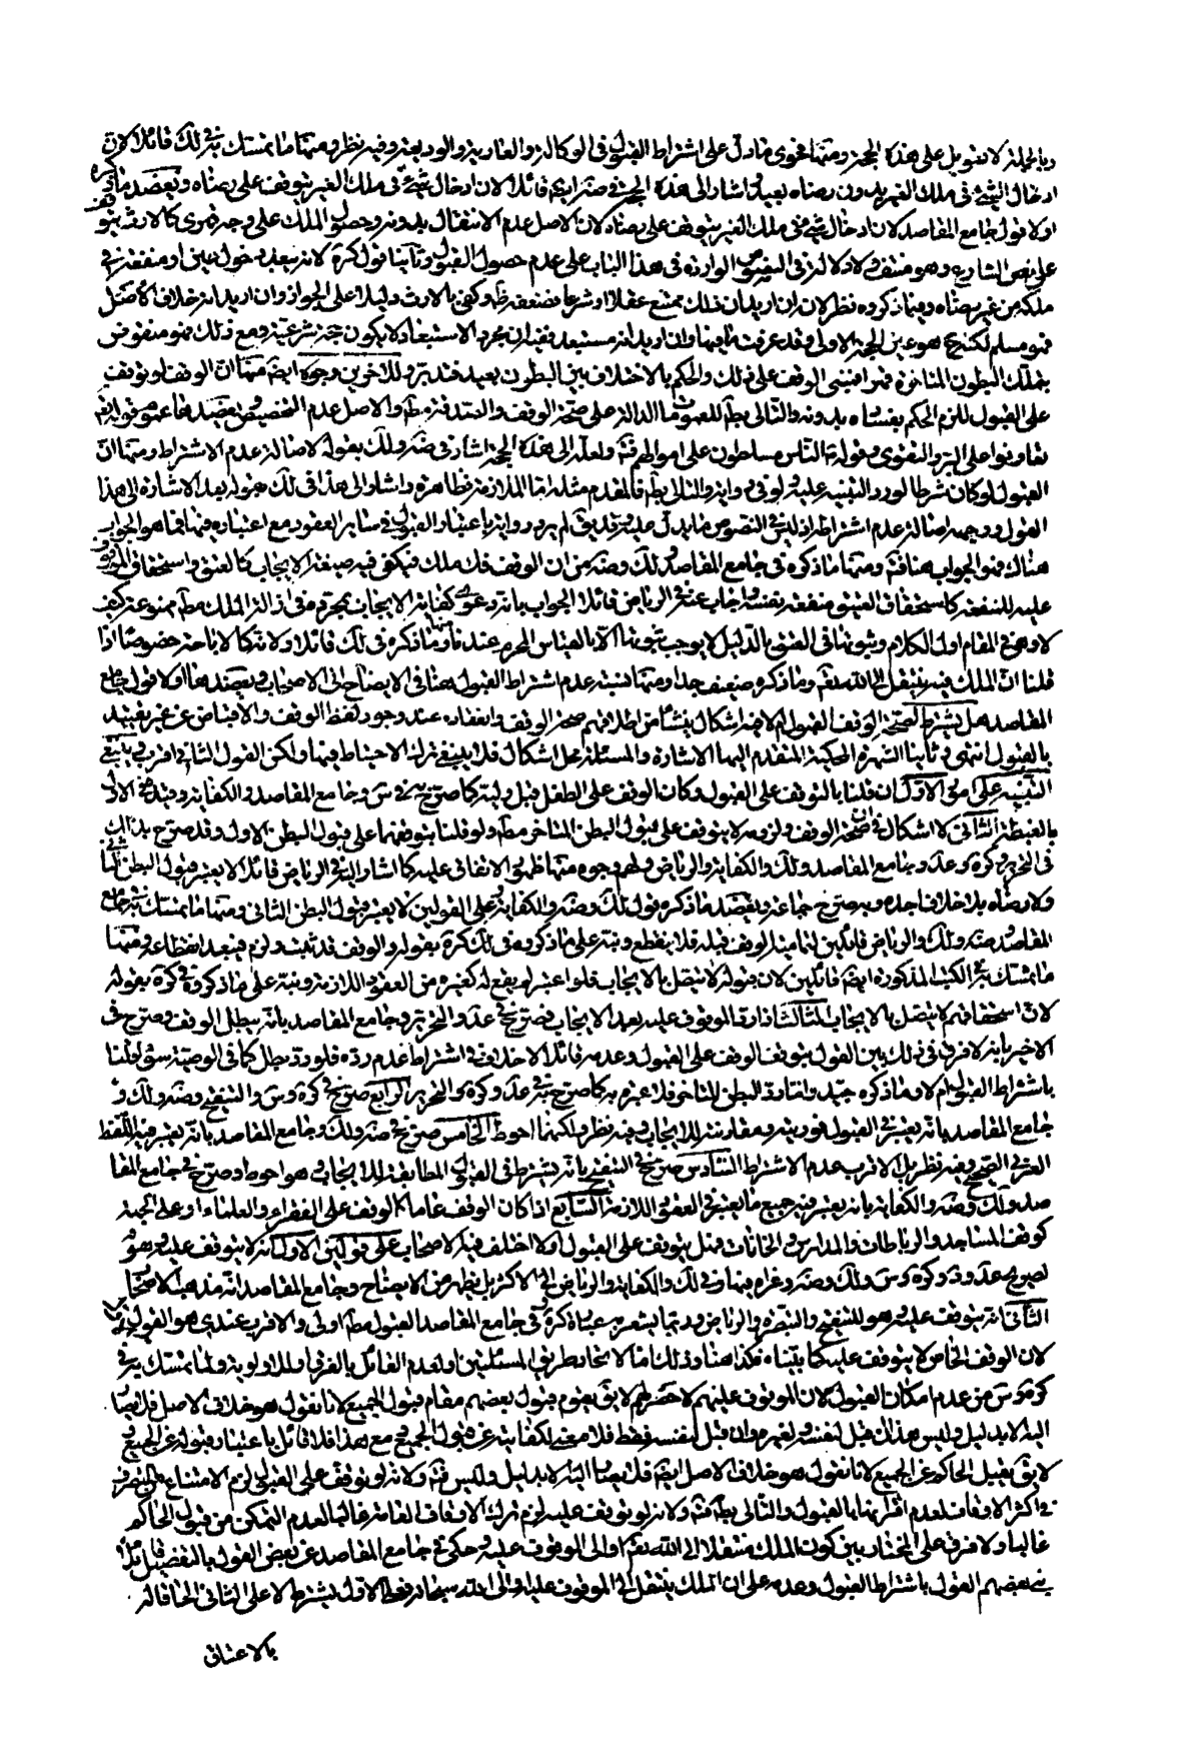 وبالجملة لا تعويل على هذه الحجة ومنها فحوى ما دل على اشتراط القبول فى الوكالة والعارية والوديعة وفيه نظر ومنها ما تمسك به فى لك قائلا لان
ادخال الشئ فى ملك الغير بدون رضاه بعيد واشار الى هذه الحجة فى ضه ايضا قائلا لان ادخال شئ فى ملك الغير يتوقف على رضاه ويعضد ما ذكره
اولا قول جامع المقاصد لان ادخال شئ فى ملك الغير يتوقف على رضاه لان الاصل عدم الانتقال بدونه وحصول الملك على وجه قهرى كالارث يتوقف
على نص الشارع وهو منتف ولا دلالة فى النصوص الواردة فى هذا الباب على عدم حصول القبول وثانيا قول كرة لانه يبعد دخول عين او منفعة فى
ملكه من غير رضاه وفيما ذكروه نظر لانه ان اريد ان ذلك ممتنع عقلا او شرعا فضعفه ظ وكفى بالارث دليلا على الجواز وان اريد انه خلاف الاصل
فهو مسلم لكنه هو عين الحجة الاولى وقد عرفت ما فيها وان اريد انه مستبعد ففيه ان مجرد الاستبعاد لا يكون حجة شرعية ومع ذلك فهو منقوض
بتملك البطون المتأخرة فمرامبنى الوقف على ذلك والحكم بالاختلاف بين البطون بعيد فتدبر وللاخرين وجوه ايضا منها ان الوقف لو توقف
على القبول للزم الحكم بفساده بدونه والتالى بط للعمومات الدالة على صحة الوقف والصدقة مط والاصل عدم التخصيص ويعضدها عموم قوله تعالى
تعاونوا على البر والتقوى وقوله ع الناس مسلطون على اموالهم ولعله الى هذه الحجة اشار فى ضه ولك بقوله لاصالة عدم الاشتراط ومنها ان
القبول لو كان شرطا لورد التنبيه عليه ولو فى رواية والتالى بط فالمقدم مثله اما الملازمة فظاهرة واشار الى هذا فى لك بقوله بعد الاشارة الى هذا
القول ووجهه اصالة عدم اشتراطه اذ ليس فى النصوص ما يدل عليه لا يق لم يرد رواية باعتبار القبول فى سائر العقود مع اعتباره فيها فما هو الجواب
هناك فهو الجواب هنا ومنها ما ذكره فى جامع المقاصد ولك وضه من ان الوقف فك ملك فيكفى فيه صيغة الايجاب كالعتق واستحقاق الموقوف
عليه للمنفعة كاستحقاق العتيق منفعة نفسه واجاب عنه فى الرياض قائلا الجواب بانه دعوى كفاية الايجاب بمجرده فى ازالة الملك مط ممنوعة كيف
لا وهو فى المقام اول الكلام وثبوتها فى العتق بالدليل لا يوجب ثبوتها الا بالقياس المحرم عندنا ومنها ما ذكره فى لك قائلا ولانه كالاباحة خصوصا اذا
قلنا ان الملك فيه ينتقل الى الله تعالى وما ذكره ضعيف جدا ومنها نسبة عدم اشتراط القبول هنا فى الايضاح الى الاصحاب ويعضدها اولا قول جامع
المقاصد هل يشترط لصحة الوقف القبول ام لا فيه اشكال ينشأ من اطلاقهم صحة الوقف وانعقاده عند وجود لفظ الوقف والاقباض من غير تقييد
بالقبول انتهى وثانيا الشهرة المحكية المتقدم اليها الاشارة والمسئلة محل اشكال فلا ينبغى ترك الاحتياط فيها ولكن القول الثانى اقرب وينبغى
التنبيه على امور الاول ان قلنا بالتوقف على القبول وكان الوقف على الطفل قبل وليه كما صرح به فى س وجامع المقاصد والكفاية وقيده فى الاول
بالغبطة الثانى لا اشكال فى ان صحة الوقف ولزومه لا يتوقف على قبول البطن المتاخر مط ولو قلنا بتوقفهما على قبول البطن الاول وقد صرح بذلك
فى التحرير وكرة وعد وجامع المقاصد ولك والكفاية والرياض ولهم وجوه منها ظهور الاتفاق عليه كما اشار اليه فى الرياض قائلا لا يعتبر قبول البطن الثانى
ولا رضاه بلا خلاف اجده وبه صرح جماعة ويعضد ما ذكره قول لك وضه والكفاية على القولين لا يعتبر قبول البطن الثانى ومنها ما تمسك به فى جامع
المقاصد وضه ولك والرياض قائلين لتمامية الوقف قبله فلا ينقطع ونبه على ما ذكروه فى لك كرة بقوله والوقف قد ثبت ولزم فيبعد انقطاعه ومنها
ما تمسك به فى الكتب المذكورة ايضا قائلين لان قبوله لا يتصل بالايجاب فلو اعتبر لم يقع له كغيره من العقود اللازمة ونبه على ما ذكروه فى كرة بقوله
لان استحقاقهم لا يتصل بالايجاب الثالث اذا رد الموقوف عليه بعد الايجاب فصرح فى عد والتحرير وجامع المقاصد بانه يبطل الوقف وصرح فى
الاخير بانه لا فرق فى ذلك بين القول بتوقف الوقف على القبول وعدمه قائلا لا خلاف فى اشتراط عدم رده فلو رد بطل كما فى الوصية سواء قلنا
باشتراط القبول ام لا وما ذكره جيد واما رد البطن المتاخر فلا عبرة به كما صرح به فى عد وكرة والتحرير الرابع صرح فى كرة وس والتنقيح وضه ولك و
جامع المقاصد بانه يعتبر فى القبول فوريته ومقارنته للايجاب وفيه نظر ولكنه احوط الخامس صرح فى ضه ولك وجامع المقاصد بانه يعتبر فيه اللفظ
العربى الصحيح وفيه نظر بل الاقرب عدم الاشتراط السادس صرح فى التنقيح بانه يشترط فى القبول المطابقة للايجاب وهو احوط وصرح فى جامع المقا
صد ولك وضه والكفاية بانه يعتبر فيه جميع ما يعتبر فى العقود اللازمة السابع اذا كان الوقف عاما كالوقف على الفقراء والعلماء او على الجهة
كوقف المساجد والرباطات والمدارس والخانات فهل يتوقف على القبول او لا اختلف فيه الاصحاب على قولين الاول انه لا يتوقف عليه وهو
لصريح عد وكرة وس ولك وضه وغيرهما وفى لك والكفاية والرياض الى الاكثر بل يظهر من الايضاح وجامع المقاصد انه مذهب الاصحاب
الثانى انه يتوقف عليه وهو للتنقيح والتبصرة والرياض وربما يشعر به عبارة كرة وفى جامع المقاصد القبول مط اولى والاقرب عندى هو القول الاول
لان الوقف الخاص لا يتوقف عليه كما بيناه فكذا هنا وذلك اما لاتحاد طريق المسئلتين او لعدم القائل بالفرق او للاولوية ولما تمسك به فى
كرة وس من عدم امكان القبول لان الموقوف عليهم لا حصر لهم لا يق يقوم قبول بعضهم مقام قبول الجميع لانا نقول هو خلاف الاصل فلا يصار
اليه الا بدليل وليس هذا ان قبل لنفسه ولغيره وان قبل لنفسه فقط فلا معنى لكفايته عن قبول الجميع ومع هذا فلا قائل باعتبار قبوله عن الجميع و
لا يق يقبل الحاكم عن الجميع لانا نقول هو خلاف الاصل ايضا فلا يصار اليه الا بدليل وليس ثمة ولانه لو توقف على القبول لزم الامتناع من التصرف
فى اكثر الاوقاف لعدم اقترانها بالقبول والتالى بط ولانه لو توقف عليه لزم ترك الاوقاف العامة غالبا لعدم التمكن من قبول الحاكم
غالبا ولا فرق على المختار بين كون الملك منتقلا الى الله تعالى او الى الموقوف عليه وحكى فى جامع المقاصد عن بعض القول بالتفصيل قائلا
بنى بعضهم القول باشتراط القبول وعدمه على ان الملك ينتقل الى الموقوف عليه او الى الله سبحانه فعلى الاول يشترط لا على الثانى الحاقا له
بالاعتاق